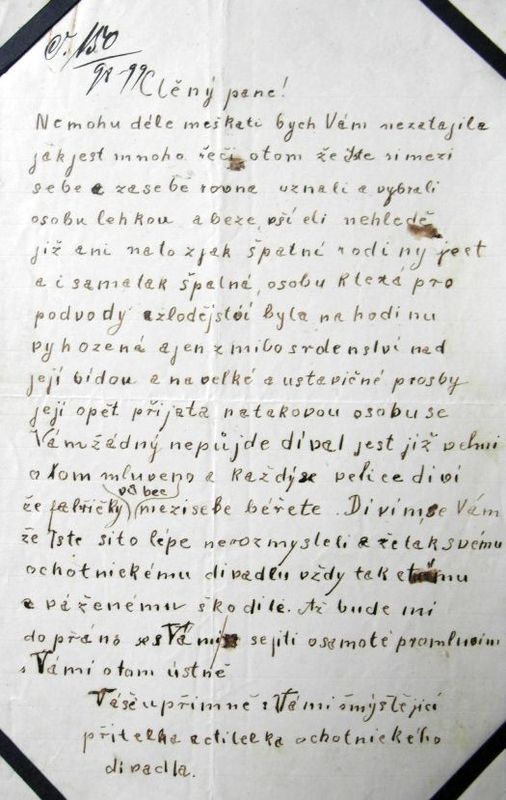 150
Ctěný pane!
Nemohu déle meškati bych Vám nezatajila
jakjest mnoho řeči otom že Jste si mezi
sebe a zasebe rovna uznali a vybrali
osobu lehkou a beze vší cti nehledě
již ani nato zjak špatní rodiny jest
a i samatak špatná osobu která pro
podvody azlodějství byla na hodinu
vyhozená ajen z milosrdenství nad
její bídou a navelké a ustavičné prosby
její opět přijata natakovou osobu se
Vámžádný nepůjde díval jest již velmi
otom mluveno a každýse velice diví
vů bec
že fabričky mezisebe béřete. Divímse Vám
že Jste sito lépe nerozmysleli a žetaksvému
ochotnickému divadlu vždy tak
a váženému škodíte. Až bude mi
dopřáno s Vámi sejíti osamotě promluvím
s Vámi otom ústně
Vášeupřímně s Vámi smýšlející
přítelka actitelka ochotnického
divadla.